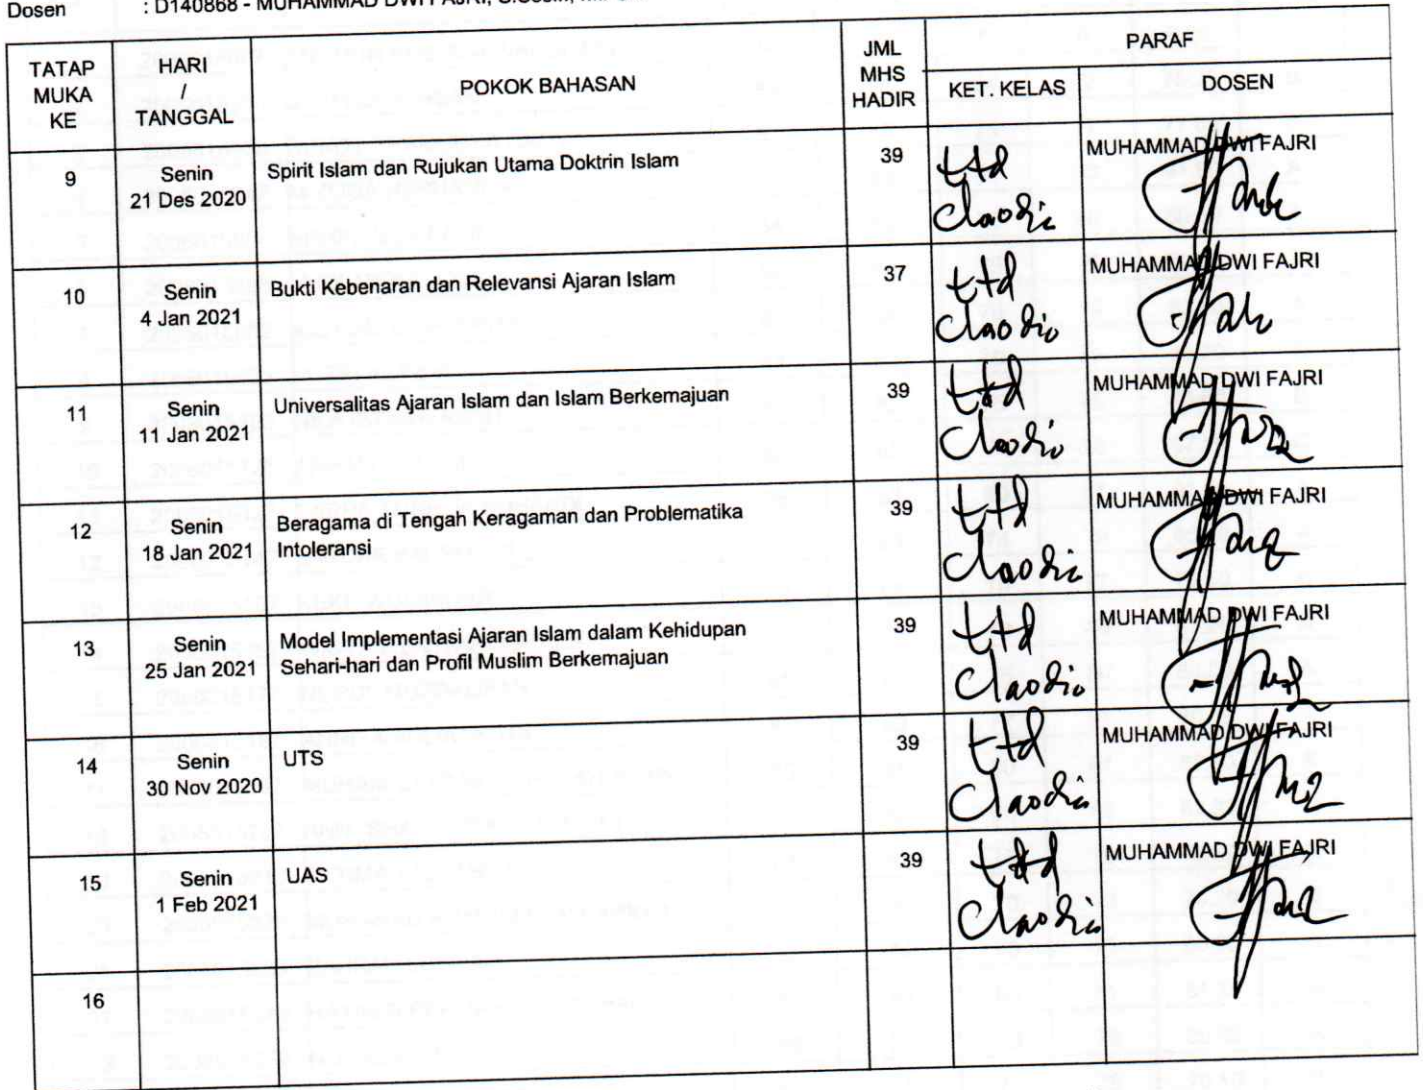 Dosen : D140868 - MUHAMMAD DWI FAJRI,
TATAP MUKA KE
HARI / TANGGAL
POKOK BAHASAN
JML MHS HADIR
PARAF
KET. KELAS
DOSEN
9
Senin
21 Des 2020
Spirit Islam dan Rujukan Utama Doktrin Islam
39
ttd
Claodia
MUHAMMAD DWI FAJRI
10
Senin
4 Jan 2021
Bukti Kebenaran dan Relevansi Ajaran Islam
37
ttd
Claodia
MUHAMMAD DWI FAJRI
11
Senin
11 Jan 2021
Universalitas Ajaran Islam dan Islam Berkemajuan
39
ttd
Claodia
MUHAMMAD DWI FAJRI
12
Senin
18 Jan 2021
Beragama di Tengah Keragaman dan Problematika
Intoleransi
39
ttd
Claodia
MUHAMMAD DWI FAJRI
13
Senin
25 Jan 2021
Model Implementasi Ajaran Islam dalam Kehidupan
Sehari-hari dan Profil Muslim Berkemajuan
39
ttd
Claodia
MUHAMMAD DWI FAJRI
14
Senin
30 Nov 2020
UTS
39
ttd
Claodia
MUHAMMAD DWI FAJRI
15
Senin
1 Feb 2021
UAS
39
ttd
Claodia
MUHAMMAD DWI FAJRI
16